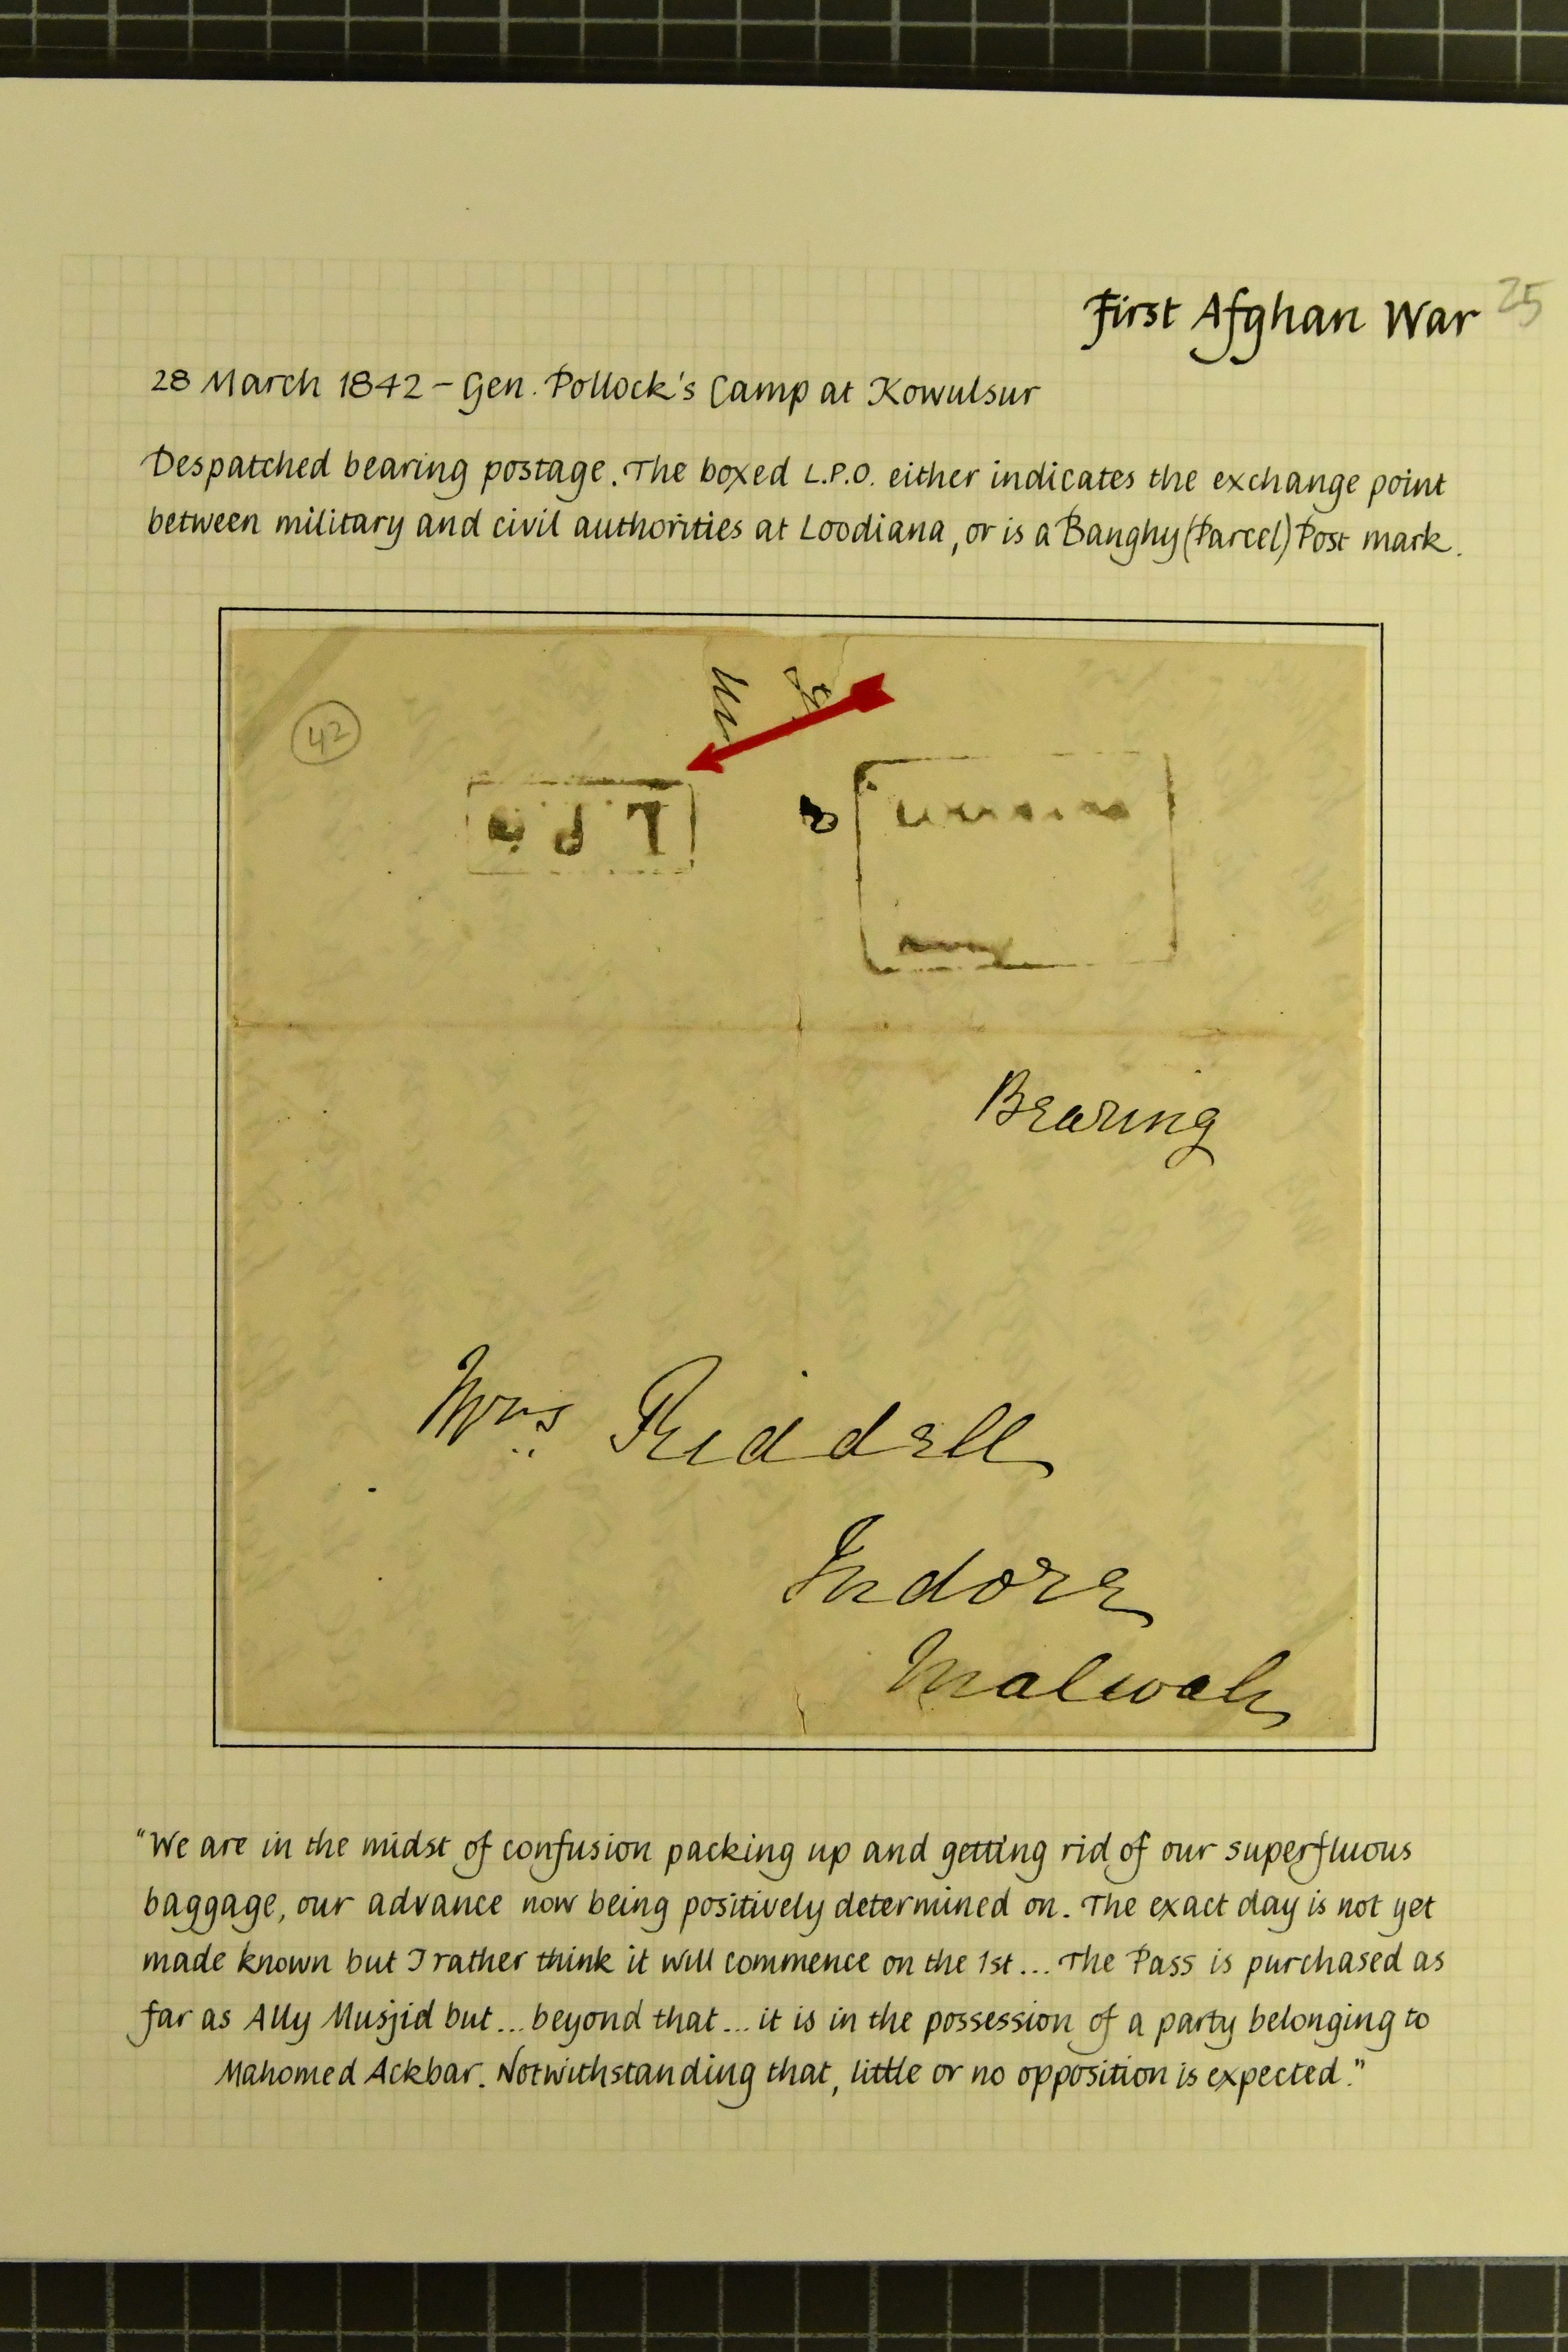 First Afghan War 25
28 March 1842 – Gen. Pollock's Camp at Kowulsur
Despatched bearing postage. The boxed L.P.O. either indicates the exchange point
between military and civil authorities at Loodiana, or is a Banghy (Parcel) Post mark.
42
L P O
Bearing
Mrs Riddell
Indore
Malwah
"We are in the midst of confusion packing up and getting rid of our superfluous
baggage, our advance now being positively determined on. The exact day is not yet
made known but I rather think it will commence on the 1st... The Pass is purchased as
far as Ally Musjid but... beyond that... it is in the possession of a party belonging to
Mahomed Ackbar. Notwithstanding that, little or no opposition is expected."